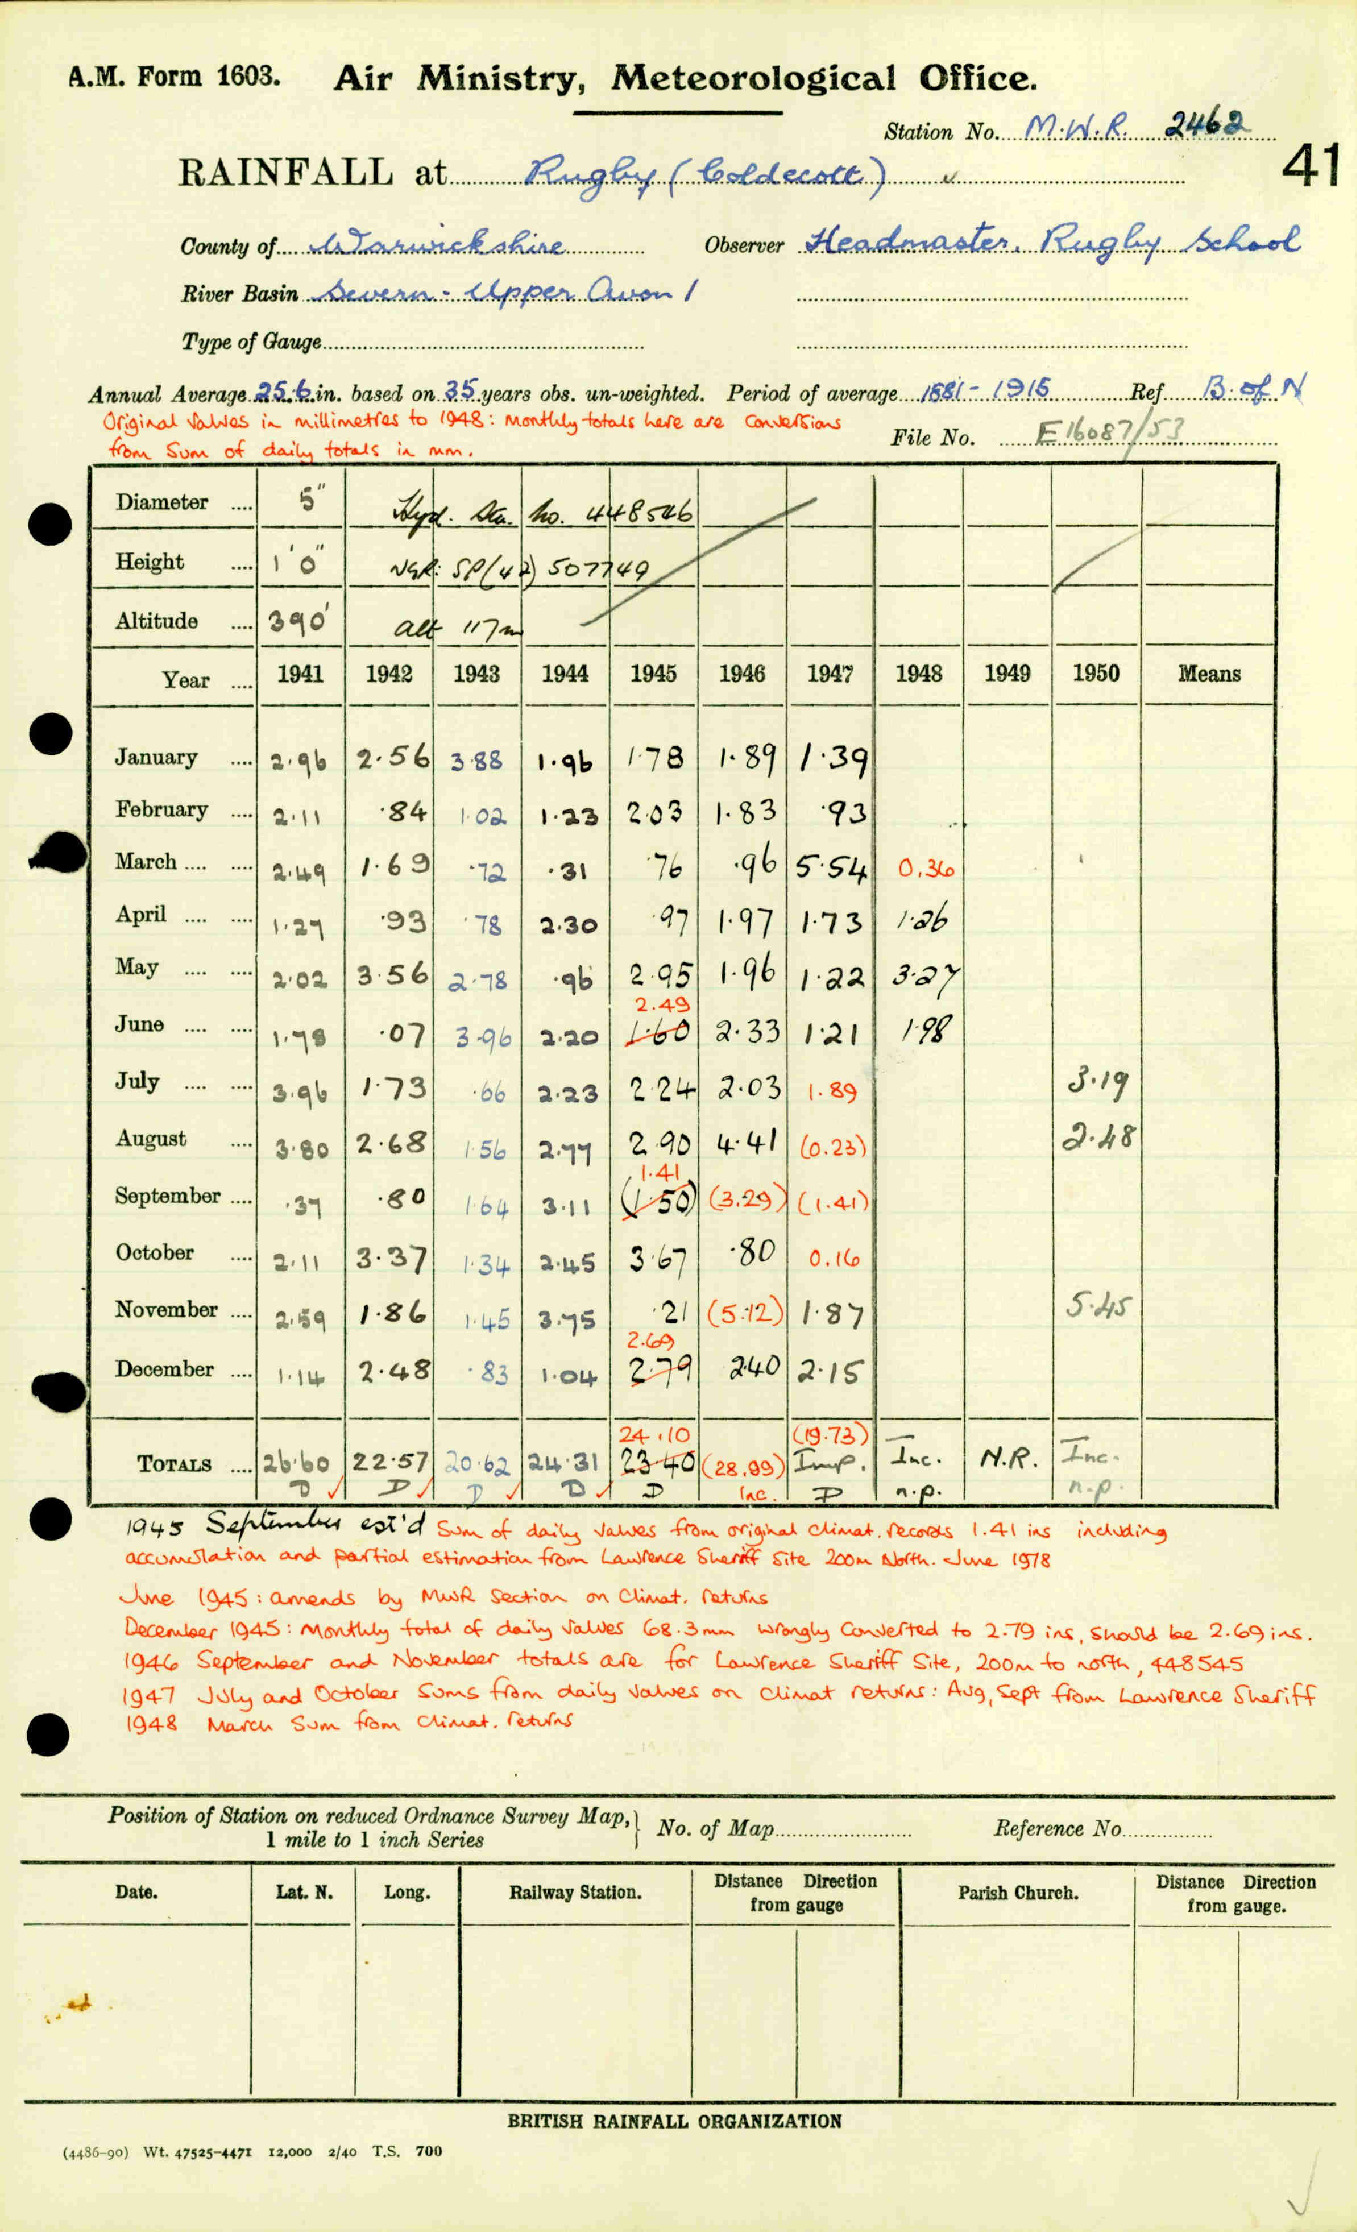 A.M. Form 1603. Air Ministry, Meteorological Office.
Station No. M.W.R. 2462
41
RAINFALL at Rugby (Coldecott) ✓
County of Warwickshire Observer Headmaster, Rugby School
River Basin Severn - Upper Avon 1
Type of Gauge
Annual Average 25.6 in. based on 35 years obs. un-weighted. Period of average 1881-1915 Ref. B. of N
Original values in millimetres to 1948: monthly totals here are conversions
from sum of daily totals in mm.
File No. E16087/53
Diameter .... 5" Hyd. Sta. No. 448546
Height .... 1'0" NGR: SP(42) 507749
Altitude .... 390' alt 117m
Year .... 1941 1942 1943 1944 1945 1946 1947 1948 1949 1950 Means
January .... 2.96 2.56 3.88 1.96 1.78 1.89 1.39
February .... 2.11 .84 1.02 1.23 2.03 1.83 .93
March .... .... 2.49 1.69 .72 .31 .76 .96 5.54 0.36
April .... .... 1.27 .93 .78 2.30 .97 1.97 1.73 1.26
May .... .... 2.02 3.56 2.78 .96 2.95 1.96 1.22 3.27
2.49
June .... .... 1.78 .07 3.96 2.20 1.60 2.33 1.21 1.98
July .... .... 3.96 1.73 .66 2.23 2.24 2.03 1.89 3.19
August .... 3.80 2.68 1.56 2.77 2.90 4.41 (0.23) 2.48
1.41
September .... .37 .80 1.64 3.11 (1.50) (3.29) (1.41)
October .... 2.11 3.37 1.34 2.45 3.67 .80 0.16
November .... 2.59 1.86 1.45 3.75 .21 (5.12) 1.87 5.45
2.69
December .... 1.14 2.48 .83 1.04 2.79 2.40 2.15
24.10 (19.73)
TOTALS .... 26.60 22.57 20.62 24.31 23.40 (28.99) Imp. Inc. N.R. Inc.
D ✓ D ✓ D ✓ D ✓ D Inc. D n.p. n.p.
1945 September est'd Sum of daily values from original climat. records 1.41 ins including
accumulation and partial estimation from Lawrence Sheriff Site 200m North. June 1978
June 1945: amends by MWR Section on Climat. returns
December 1945: Monthly total of daily values 68.3mm wrongly converted to 2.79 ins, should be 2.69 ins.
1946 September and November totals are for Lawrence Sheriff Site, 200m to north, 448545
1947 July and October Sums from daily values on climat returns: Aug, Sept from Lawrence Sheriff
1948 March Sum from Climat. returns
Position of Station on reduced Ordnance Survey Map, 1 mile to 1 inch Series } No. of Map Reference No.
Date. Lat. N. Long. Railway Station. Distance Direction from gauge Parish Church. Distance Direction from gauge.
BRITISH RAINFALL ORGANIZATION
(4486-90) Wt. 47525-4471 12,000 2/40 T.S. 700